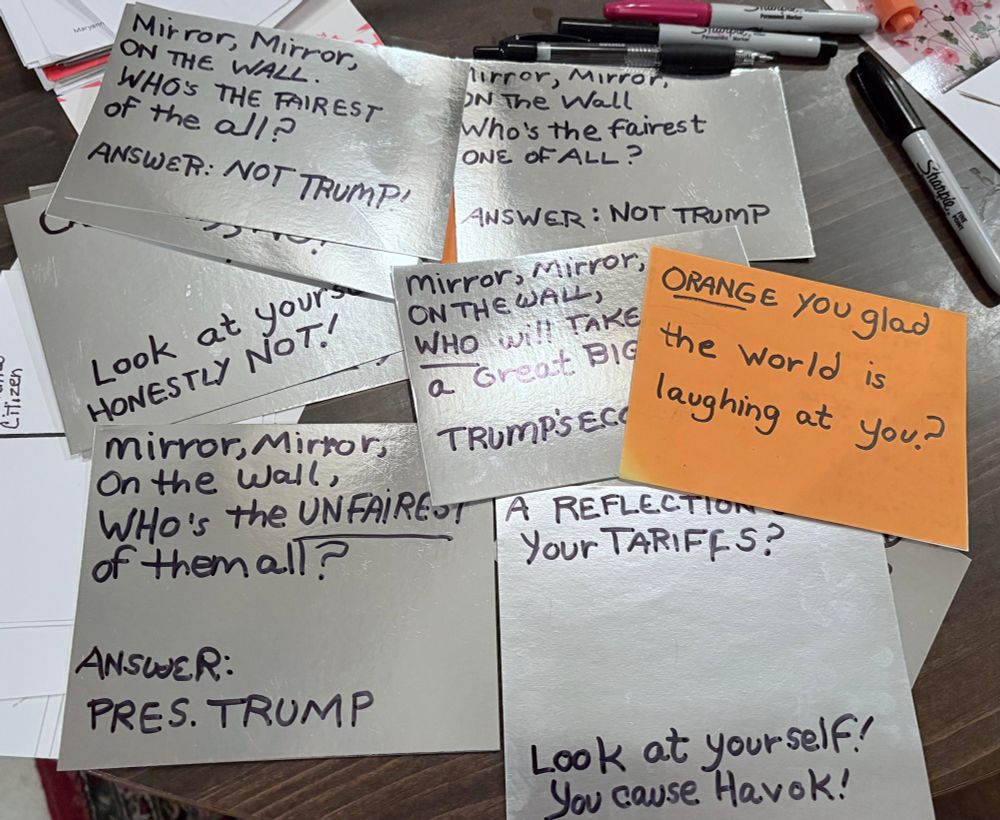 Maryann
Mirror, Mirror,
ON THE WALL.
WHO'S THE FAIREST
of the all?
ANSWER: NOT TRUMP!
irror, Mirror,
ON The Wall
Who's the fairest
ONE OF ALL?
ANSWER: NOT TRUMP
Look at yourse
HONESTLY NOT!
Mirror, Mirror,
ON THE WALL,
WHO will TAKE
a Great BIG
TRUMP'S ECO
ORANGE you glad
the world is
laughing at you?
mirror, Mirror,
On the Wall,
WHO's the UNFAIREST
of them all?
ANSWER:
PRES. TRUMP
A REFLECTION
your TARIFFS?
Look at yourself!
You cause Havok!
Citizen
Sharpie
Permanent Marker
Sharpie
Permanent Marker
Sharpie
FINE POINT